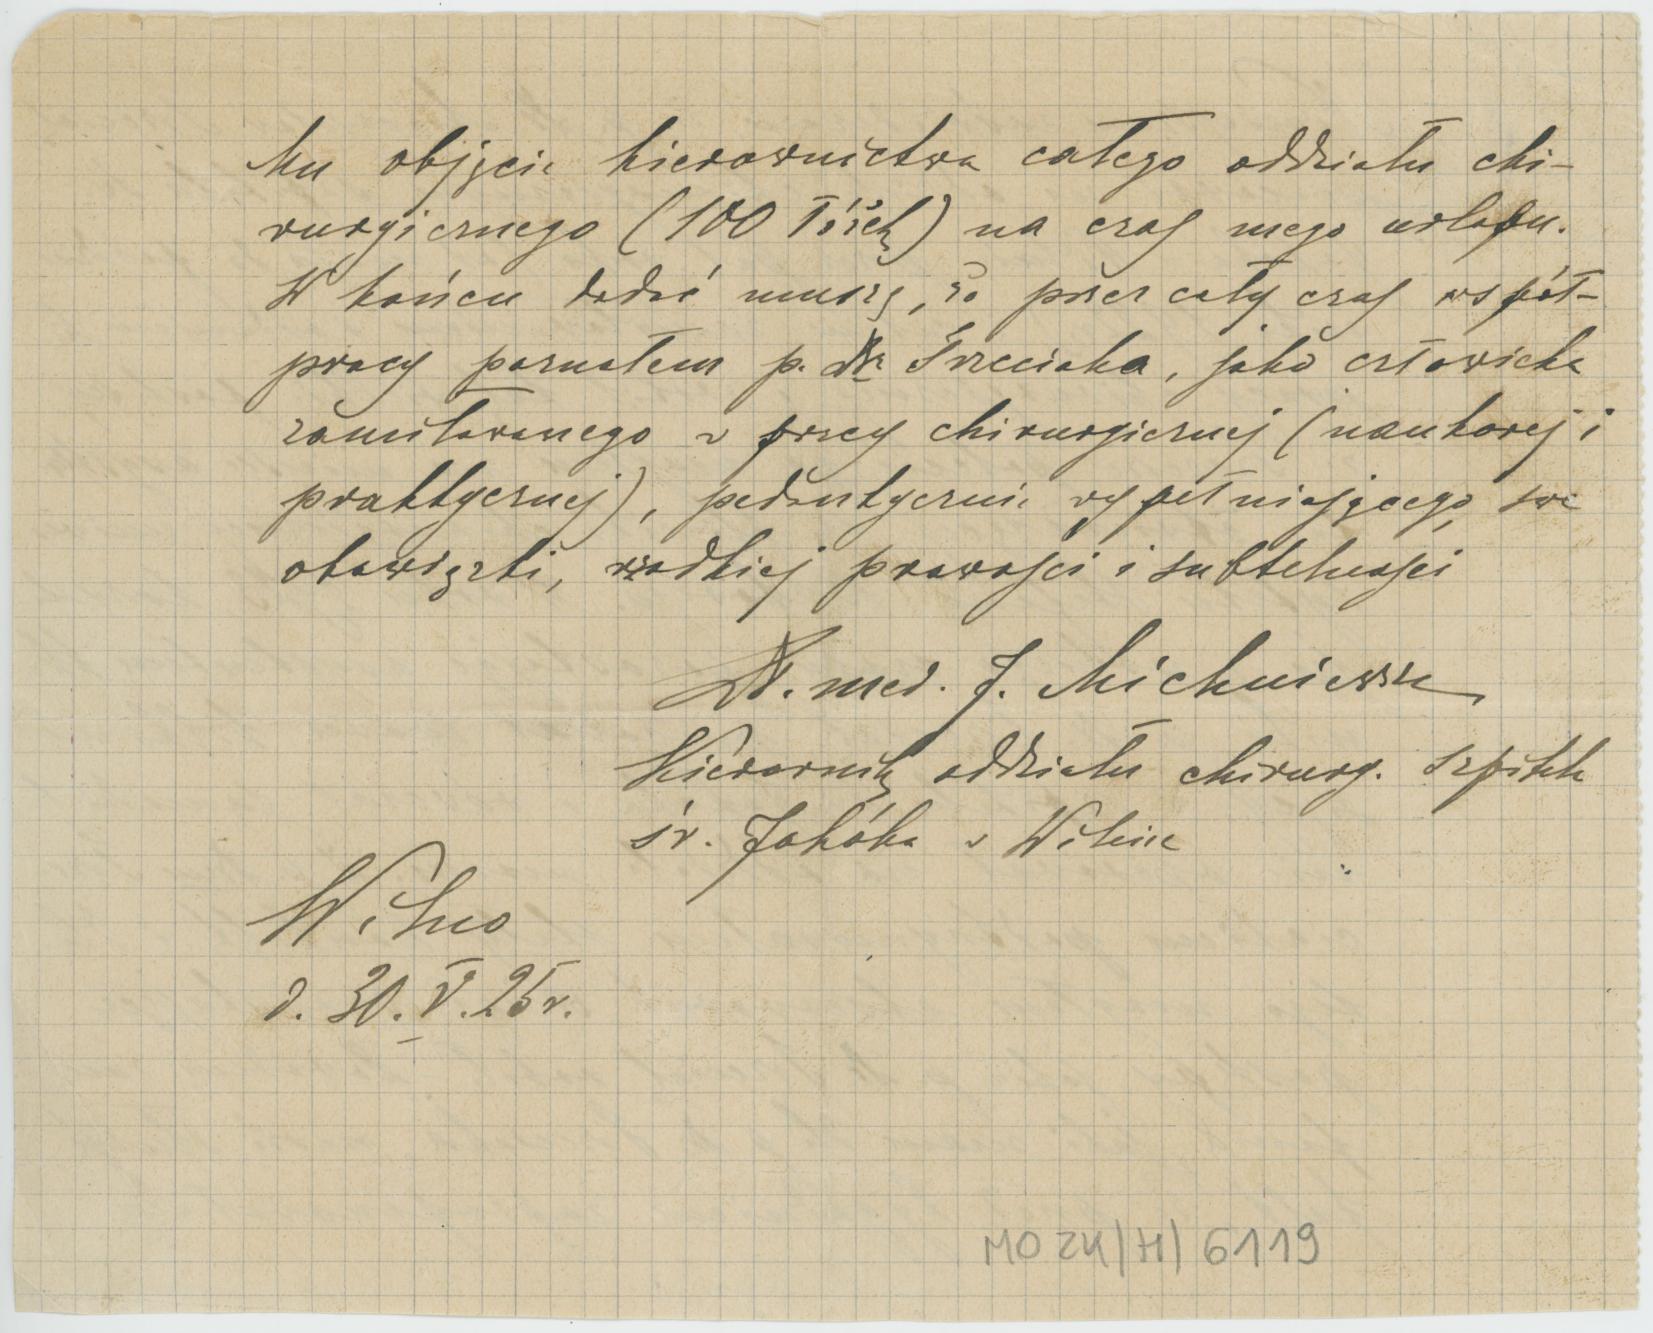 Mu objęcie kierownictwa całego oddziału chi-
rurgicznego (100 łóżek) na czas mego urlopu.
W końcu dodać muszę, że przez cały czas współ-
pracy poznałem p. Dr Trzeciaka, jako człowieka
zamiłowanego w pracy chirurgicznej (naukowej i
praktycznej), pedantycznie wypełniającego swe
obowiązki, rzadkiej prawości i subtelności
Dr. med. J. Michniewicz
Kierownik oddziału chirurg. szpitala
św. Jakóba w Wilnie
Wilno
d. 30. V. 25 r.
MOZK/H/6119